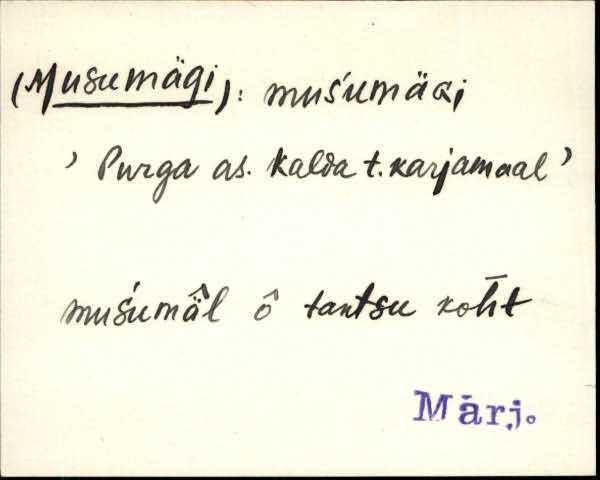 (Musumägi): muśumäɢi
' Purga as. Kalda t. karjamaal '
muśumä̂l ô tantsu koh̄t
Märj.